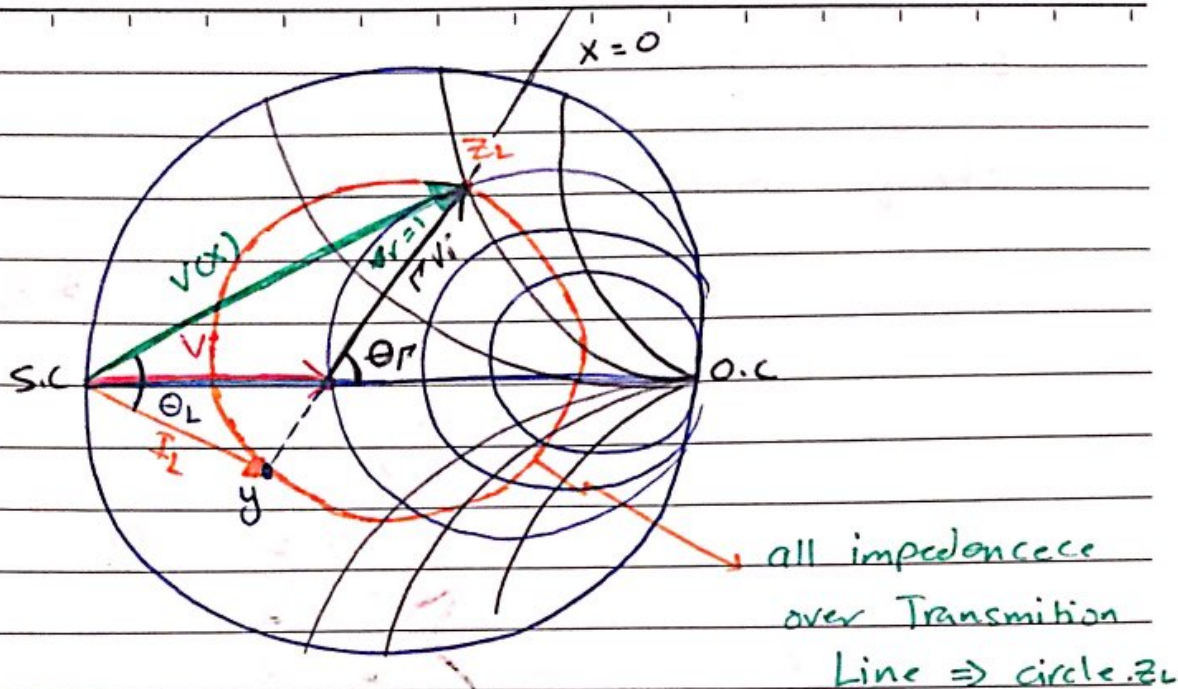 x = 0
ZL
V(x)
ΓVi
V
θΓ
S.C
O.C
θL
IL
y
all impedoncece
over Transmition
Line => circle.ZL